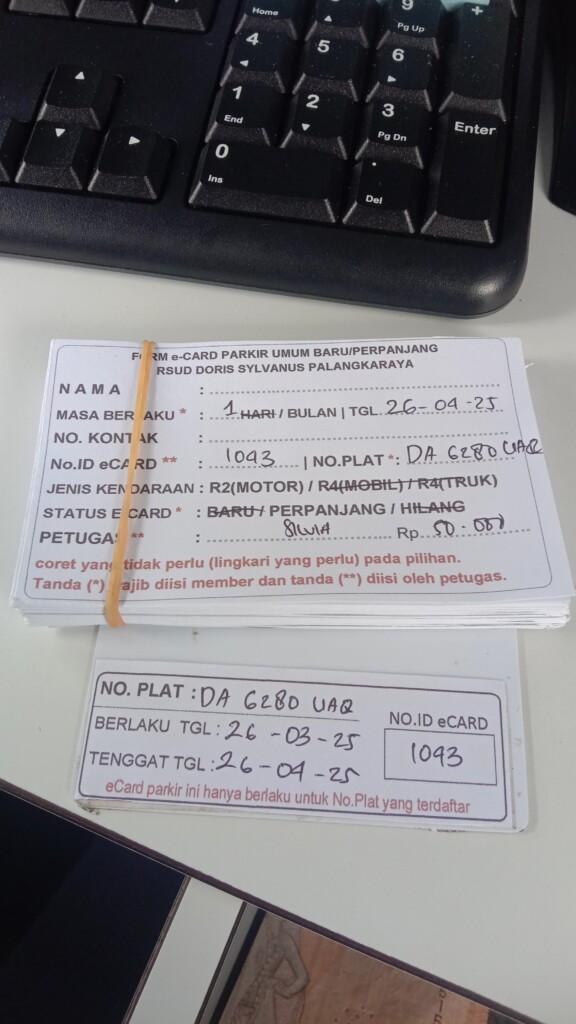 Home
9
Pg Up
+
4
5
6
1
End
2
3
Pg Dn
Enter
0
Ins
.
Del
FORM e-CARD PARKIR UMUM BARU/PERPANJANG
RSUD DORIS SYLVANUS PALANGKARAYA
NAMA :
MASA BERLAKU * : 1 HARI / BULAN | TGL. 26-04-25
NO. KONTAK :
No.ID eCARD ** : 1093 | NO.PLAT *: DA 6280 UAQ
JENIS KENDARAAN : R2(MOTOR) / R4(MOBIL) / R4(TRUK)
STATUS E CARD * : BARU / PERPANJANG / HILANG
PETUGAS ** : SILVIA Rp. 50.000
coret yang tidak perlu (lingkari yang perlu) pada pilihan.
Tanda (*) wajib diisi member dan tanda (**) diisi oleh petugas.
NO. PLAT : DA 6280 UAQ
BERLAKU TGL : 26-03-25
NO.ID eCARD
TENGGAT TGL : 26-04-25
1093
eCard parkir ini hanya berlaku untuk No.Plat yang terdaftar